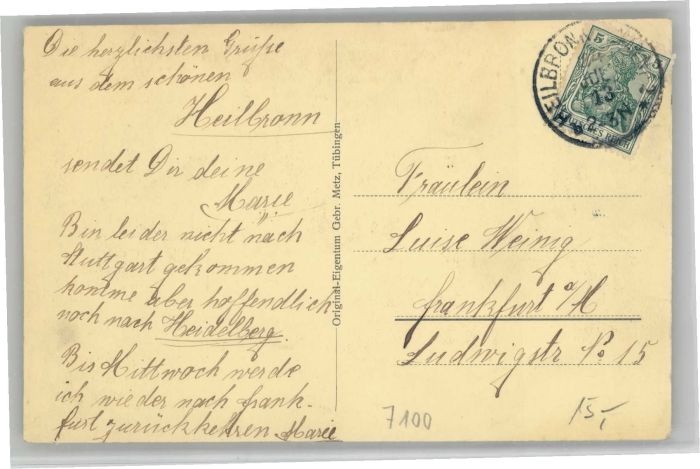 Die herzlichsten Grüße
aus dem schönen
Heilbronn
sendet Dir deine
Marie
Bin leider nicht nach
Stuttgart gekommen
komme aber hoffendlich
noch nach Heidelberg.
Bis Mittwoch werde
ich wieder nach Frank-
furt zurückkehren Marie
Original-Eigentum Gebr. Metz, Tübingen
HEILBRON
JUL
13
5
5
Fräulein
Luise Weinig
Frankfurt a/M
Ludwigstr No 15
7100
15,-